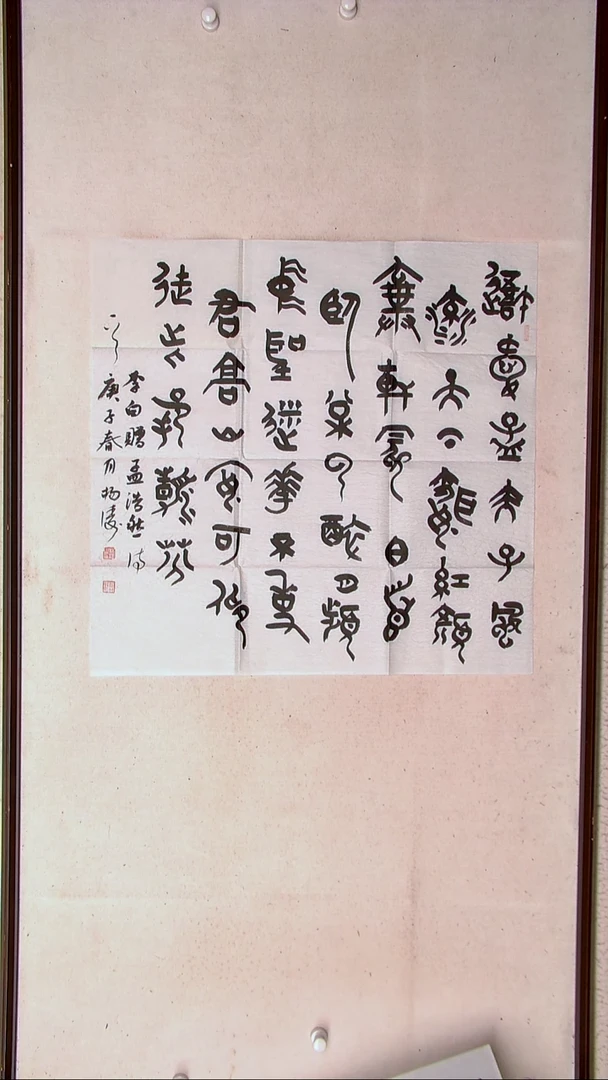 吾愛孟夫子風
流天下聞紅顔
棄軒冕白首
臥松雲醉月頻
中聖迷花不事
君高山安可仰
徒此揖清芬
李白贈孟浩然詩
一首 庚子春月